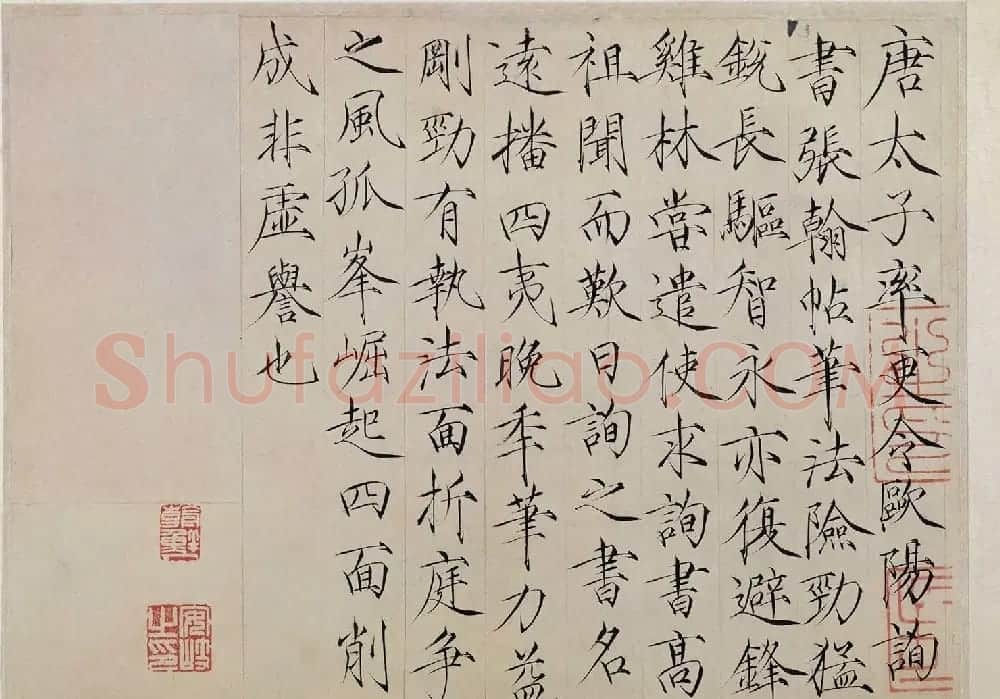 唐太子率更令歐陽詢
書張翰帖筆法險勁猛
銳長驅智永亦復避鋒
雞林嘗遣使求詢書高
祖聞而歎日詢之書名
遠播四夷晚秊筆力益
剛勁有執法面折庭爭
之風孤峯崛起四面削
成非虛譽也
安岐之印
Shufaziliao.COM